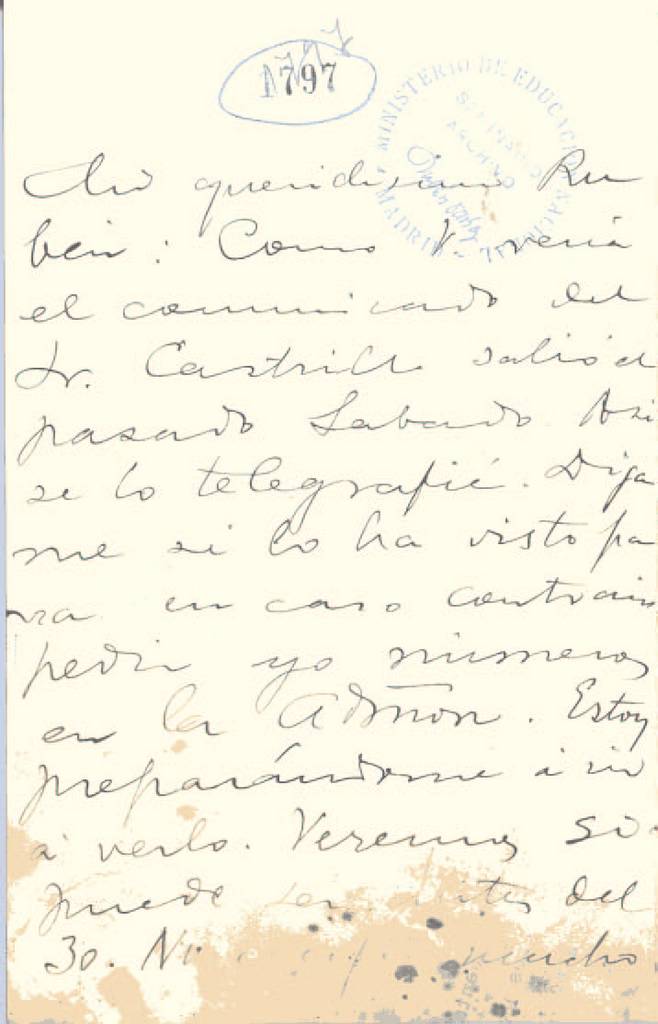 1797
MINISTERIO DE EDUCACIÓN NACIONAL
SEMINARIO
ARCHIVO
MADRID
Mi queridisimo Ru
ben: Como V. vería
el comunicado del
Sr. Castrillo salió el
pasado Sabado. Asi
se lo telegrafié. Diga
me si lo ha visto pa
ra en caso contrario
pedir yo números
en la Admon. Estoy
preparándome á ir
á verlo. Veremos si
puede ser antes del
30. No mucho